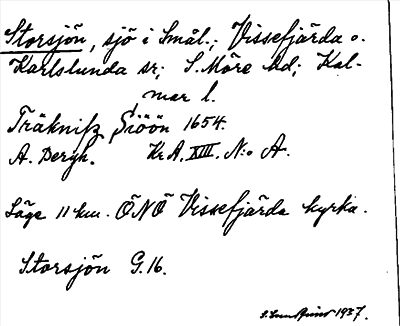 Storsjön, sjö i Smål.; Vissefjärda o.
Karlslunda sr; S. Möre hd; Kal-
mar l.
Träknifz Siöön 1654.
A. Bergh. Kr.A. XIII. N:o A.
Läge 11 km. ÖNÖ Vissefjärda kyrka.
Storsjön G. 16.
1937.